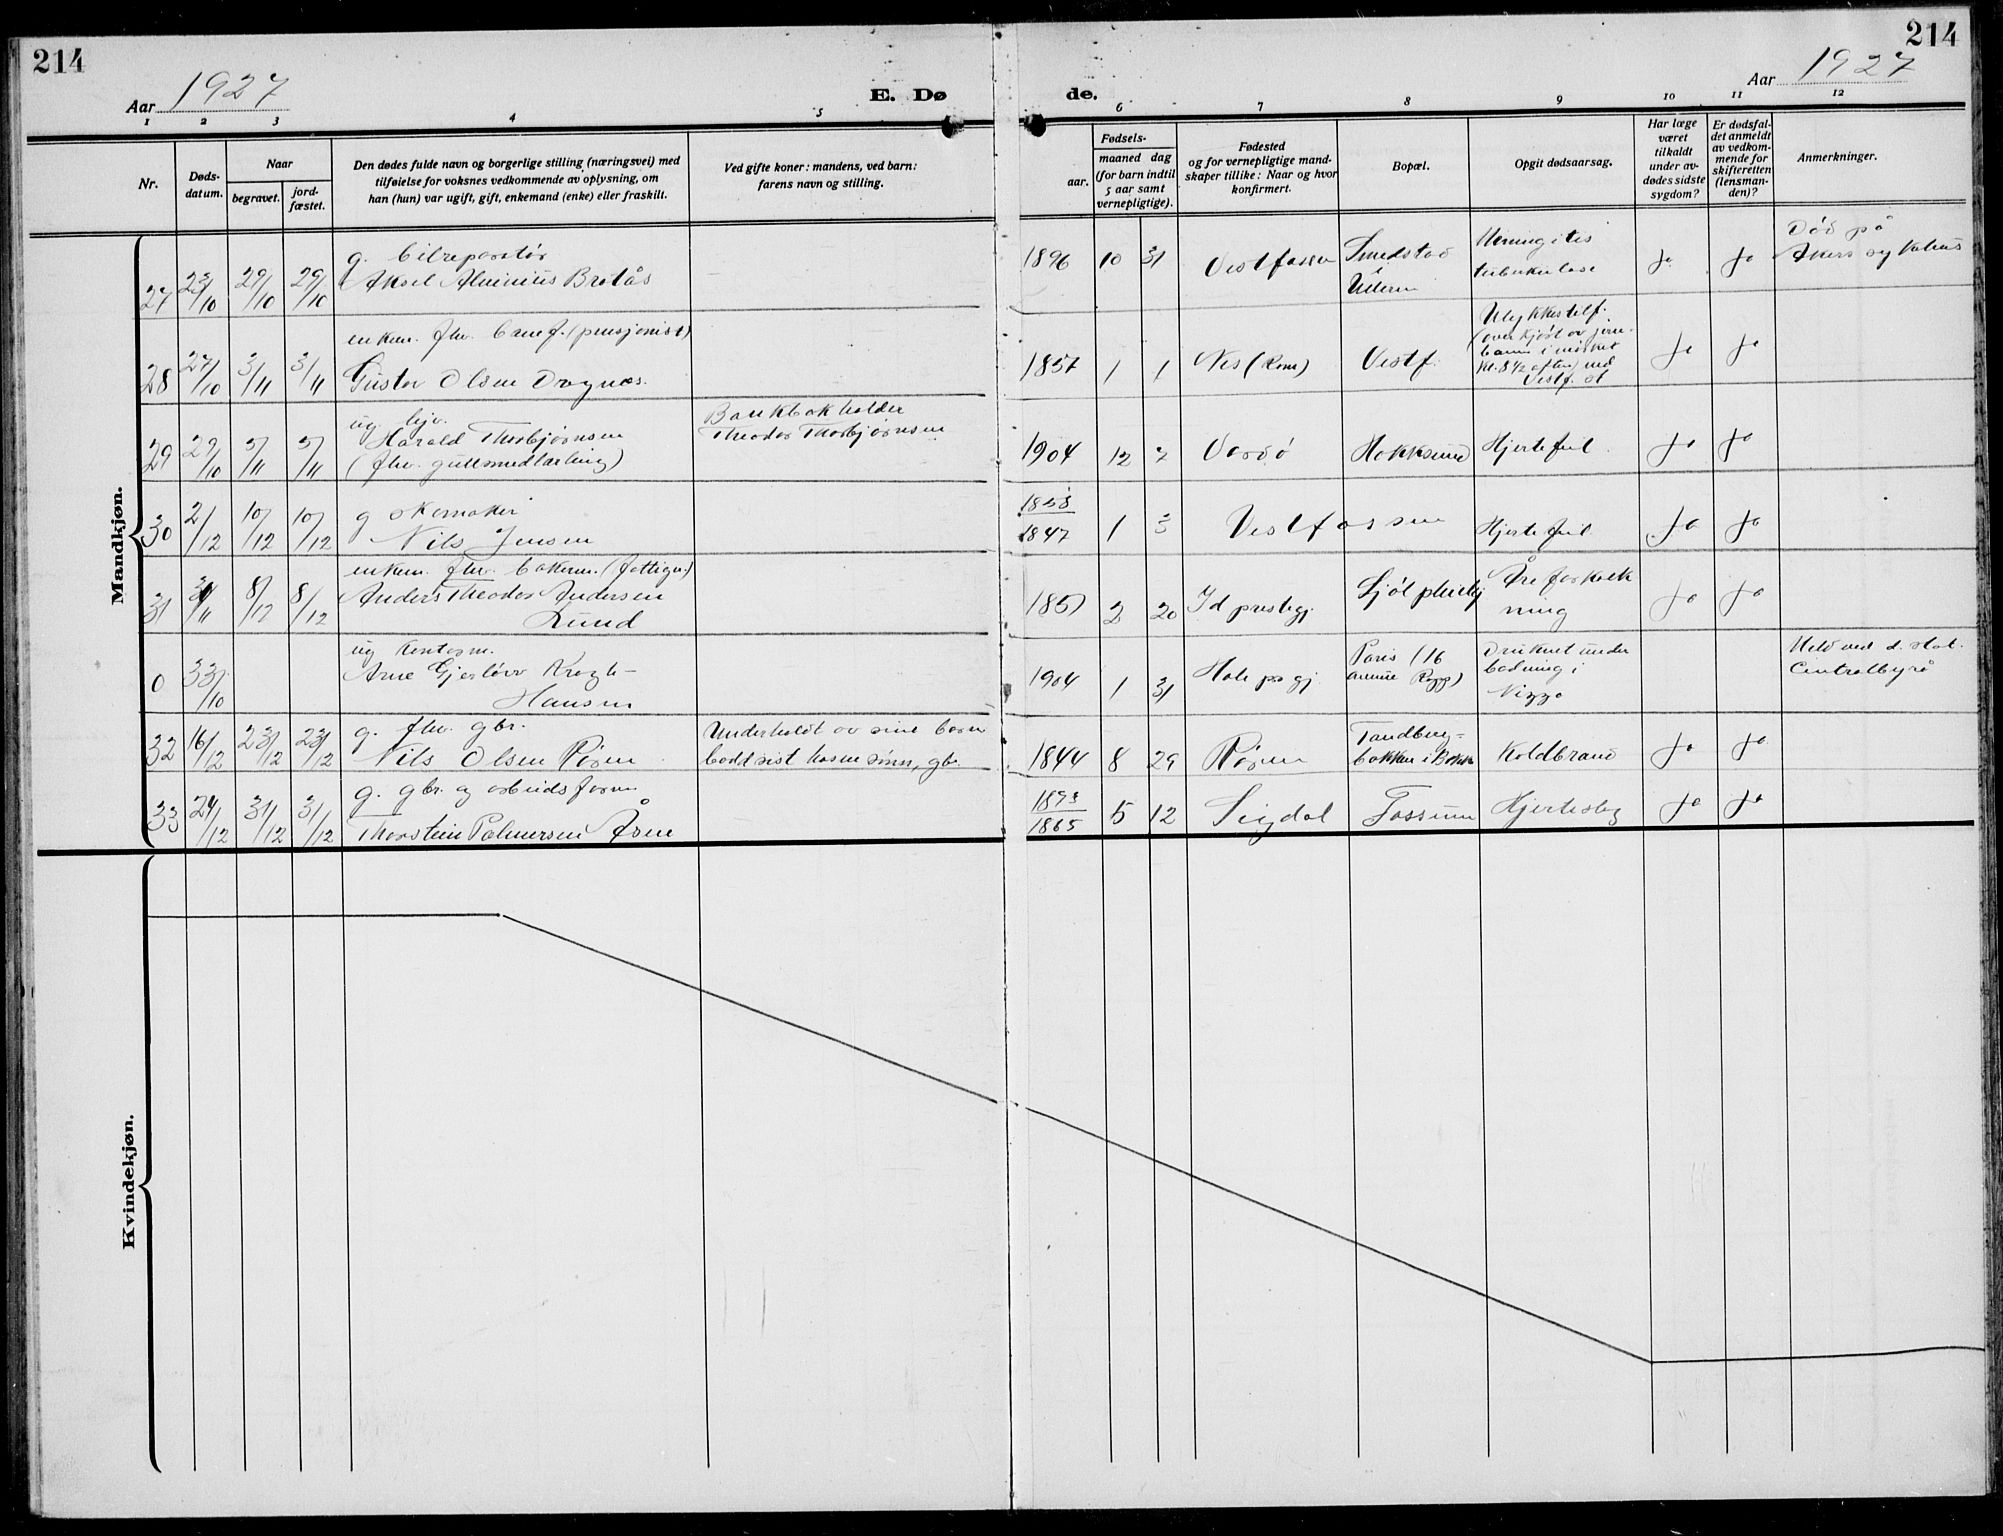 214
214
Aar 1927
E. Dø
de.
Aar 1927
1 2 3 4 5 6 7 8 9 10 11 12
Nr.
Døds-
datum.
Naar
begravet.
jord-
fæstet.
Den dødes fulde navn og borgerlige stilling (næringsvei) med
tilføielse for voksnes vedkommende av oplysning, om
han (hun) var ugift, gift, enkemand (enke) eller fraskilt.
Ved gifte koner: mandens, ved barn:
farens navn og stilling.
Fødsels-
aar.
maaned dag
(for barn indtil
5 aar samt
vernepligtige).
Fødested
og for vernepligtige mand-
skaper tillike: Naar og hvor
konfirmert.
Bopæl.
Opgit dødsaarsag.
Har læge
været
tilkaldt
under av-
dødes sidste
sygdom?
Er dødsfal-
det anmeldt
av vedkom-
mende for
skifteretten
(lensman-
den)?
Anmerkninger.
Mandkjøn.
27 23/10 29/10 29/10
g. bilreparatør
Aksel Brotås
1896 10 31 Vestfossen
Smedstad
Meningitis
tuberkulose
ja ja
Død på
Akers sykehus
28 27/10 3/11 3/11
enkem. fhv. banef. (pensjonist)
Gustav Olsen Dragnes.
1857 1 1 Nes (Rom) Vestf.
Ulykkestilf.
(overkjørt av jern-
bane i mørket
kl. 8 1/2 aften) ved
Vestf. st
ja ja
29 29/10 5/11 5/11
ug. hjv.
Harald Thorbjørnsen
(fhv. gullsmedlærling)
Bankbokholder
Theodor Thorbjørnsen
1904 12 7 Vardø Hokksund Hjertefeil. ja ja
30 2/12 10/12 10/12
g skomaker
Nils Jensen
1847 1 3 Vestfossen Hjertefeil ja ja
31 8/12 8/12
enkem. fhv. bakerm. (fattigu.)
Anders Theodor Andersen
Lund
2 20 Id prestegj.
Åreforkalk
ning
ja ja
0
ug kontorm.
Arne Gjerløw Krogh-
Hansen
1904 1 31 Hole pr gj.
Paris (16
avenue
Druknet under
badning i
Nizza
Meld ved d. stat.
Centralbyrå
32 16/12 23/12 23/12
g. fhv. gbr.
Nils Olsen Røren
Underholdt av sine barn
bodd sist hos en sønn, gbr.
1844 8 29 Røren
Tandberg-
bakken i
Koldbrand ja ja
33 24/12 31/12 31/12
g. gbr. og arbeidsform.
Thorstein Palmersen Åsne
1865 5 12 Sigdal Fossum Hjerteslag ja ja
Kvindekjøn.